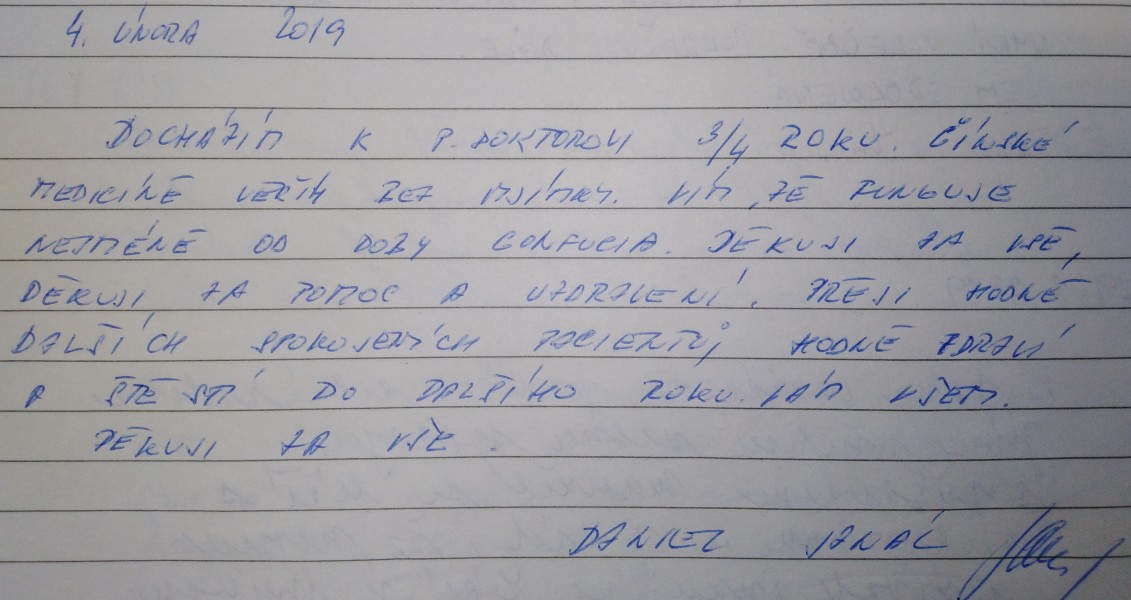 4. ÚNORA 2019
DOCHÁZÍM K P. DOKTOROVI 3/4 ROKU. ČÍNSKÉ
MEDICÍNĚ VĚŘÍM BEZ VÝJIMKY. VÍM, ŽE FUNGUJE
NEJMÉNĚ OD DOBY CONFUCIA. DĚKUJI ZA VŠE,
DĚKUJI ZA POMOC A UZDRAVENÍ. PŘEJI HODNĚ
DALŠÍCH SPOKOJENÝCH PACIENTŮ, HODNĚ ZDRAVÍ
A ŠTĚSTÍ DO DALŠÍHO ROKU VÁM VŠEM.
DĚKUJI ZA VŠE.
DANIEL